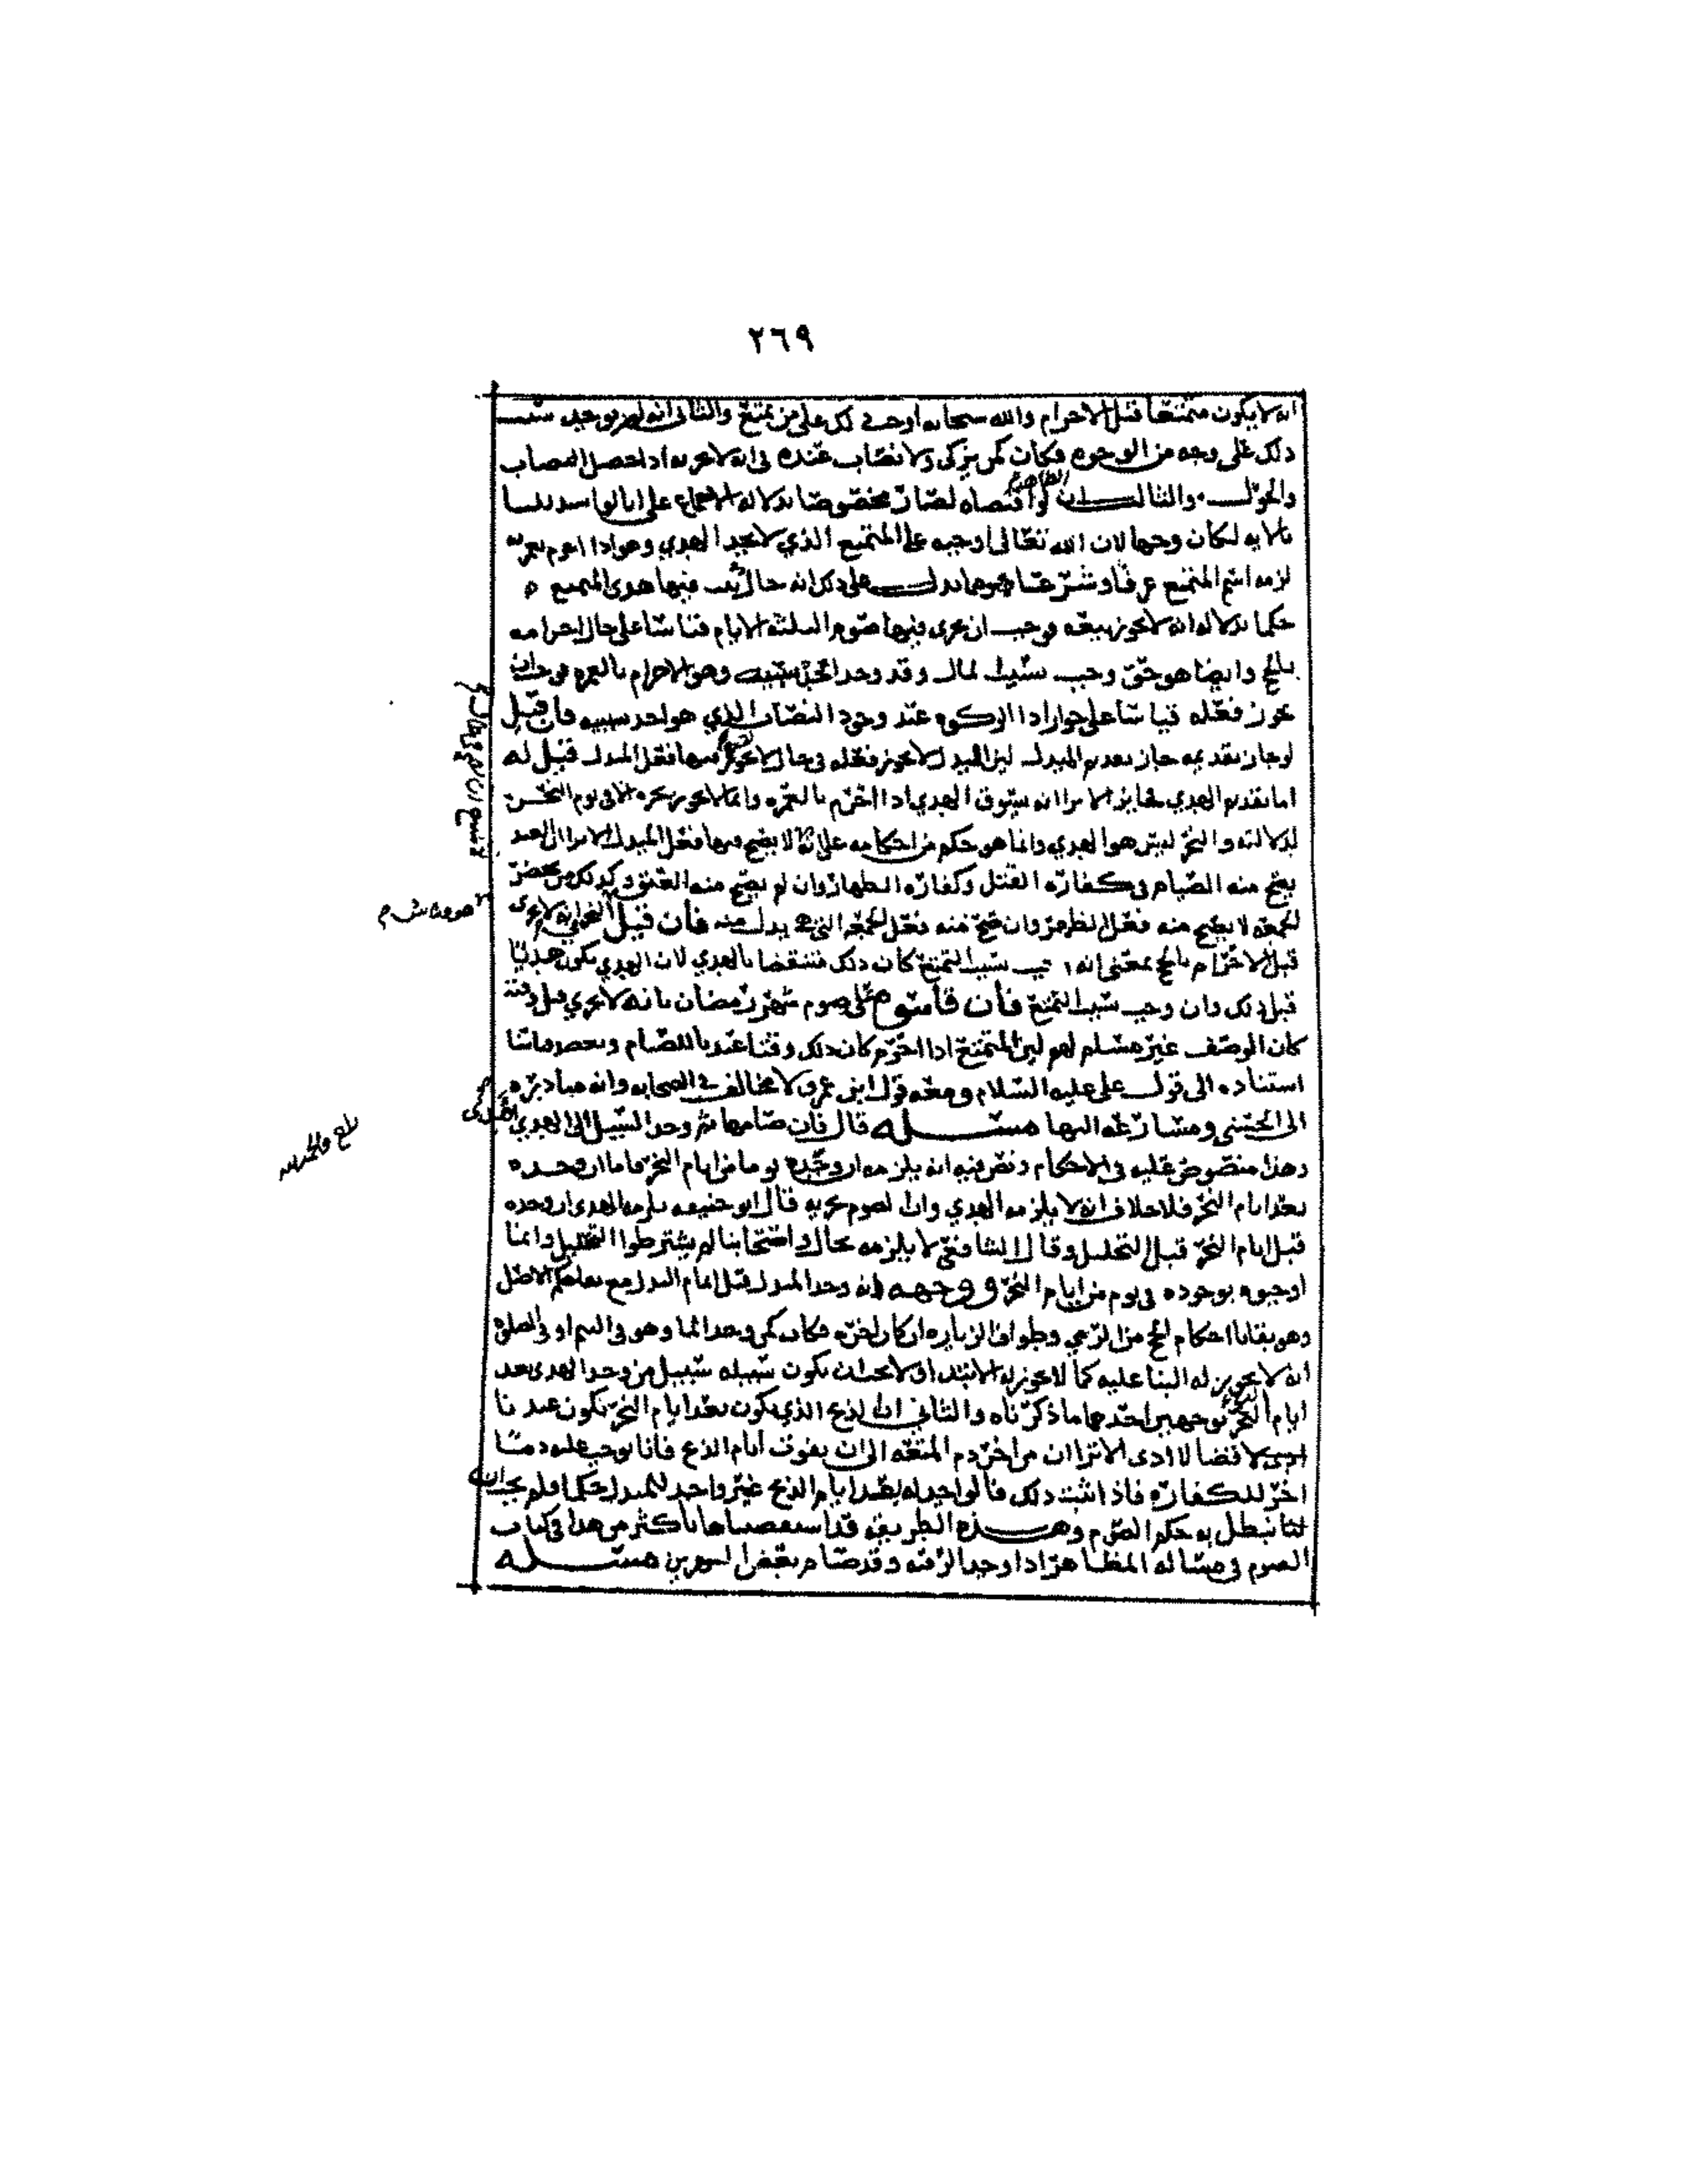 ٢٦٩
انه لا يكون متمتعا قبل الاحرام والله سبحانه اوجب ذلك على من تمتع والثاني انه لم يوجد سبب
ذلك على وجه من الوجوه فكان كمن يزكي ولا نصاب عنده في انه لا يجزيه اذا حصل النصاب
والحول والثالث ان الظاهر لو اقتضاه لصار مخصوصا بدلالة الاجماع على انا لو استدللنا
بالايه لكان وجها لان الله تعالى اوجبه على المتمتع الذي لا يجد الهدي وهو اذا احرم بعمرته
لزمه اسم المتمتع عرفا وشرعا ومما يدل على ذلك انه حال يثبت فيها هدي المتمتع
حكما بدلالة انه لا يجوز بيعه فوجب ان يجزي فيها صوم الثلثه الايام قياسا على حال احرامه
بالحج وايضا هو حق وجب بسببه المال وقد وجد احد سببيه وهو الاحرام بالعمره فوجب ان
يجوز فعله قياسا على جواز ادا الزكوه عند وجود النصاب الذي هو احد سببيه فان قيل
لو جاز تقديمه جاز تقديم المبدل لان البدل لا يجوز فعله في حال لا يجوز فيها فعل المبدل قيل له
اما تقديم الهدي فجايز الا ترا انه يسوق الهدي اذا احرم بالعمره وانما لا يجوز نحره الا في يوم النحر
لدلالته والنحر ليس هو الهدي وانما هو حكم من احكامه على انه لا يصح فيها فعل المبدل الا ترا ان العبد
يصح منه الصيام في كفارة القتل وكفارة الظهار وان لم يصح منه العتق وكذلك من يحضر
الجمعه لا يصح منه فعل الظهر وان صح منه فعل الجمعه التي هي بدل منه فان قيل انه لا يجزي
قبل الاحرام بالحج بمعنى انه يجب بسبب التمتع كان ذلك منتقضا بالهدي لان الهدي يكون هديا
قبل ذلك وان وجب بسبب التمتع فان قاسوه على صوم شهر رمضان بانه لا يجزي قبل وقته
كان الوصف غير مسلم لهم لان المتمتع اذا احرم كان ذلك وقتا عندنا للصيام ويعضد قياسنا
استناده الى قول علي عليه السلام ومعه قول ابن عمر ولا مخالف في الصحابه وانه مبادره
الى الحسنى ومسارعه اليها مسئله قال فان صامها ثم وجد السبيل الى الهدي
وهذا منصوص عليه في الاحكام ونص فيه انه يلزمه ان وجده يوما من ايام النحر فاما ان وجده
بعد ايام النحر فلا خلاف انه لا يلزمه الهدي وان الصوم يجزيه قال ابو حنيفه يلزمه الهدي ان وجده
قبل ايام النحر قبل التحلل وقال الشافعي لا يلزمه بحال واصحابنا لم يشترطوا التحلل وانما
اوجبوه بوجوده في يوم من ايام النحر ووجهه انه وجد المبدل قبل اتمام البدل مع بقا حكم الاصل
وهو بقايا احكام الحج من الرمي وطواف الزياره ان كان اخره فكان كمن وجد الما وهو في التيمم او في الصلوة
انه لا يجوز له البنا عليه كما لا يجوز له الابتدا ولا يجب ان يكون سبيله سبيل من وجد الهدي بعد
ايام النحر لوجهين احدهما ما ذكرناه والثاني ان الذبح الذي يكون بعد ايام النحر يكون عندنا
قضا لا ادى الا ترا ان من اخر دم المتعه الى ان يفوت ايام الذبح فانا نوجب عليه دما
اخر للكفاره فاذا ثبت ذلك فالواجد له بعد ايام الذبح غير واجد للمبدل حكما فلم يجب ان
يبطل به حكم الصوم وهذه الطريقه قد استقصيناها باكثر من هذا في كتاب
الصوم في مسالة المظاهر اذا وجد الرقبه وقد صام بعض الشهرين مسئله
بلغ والحمد لله